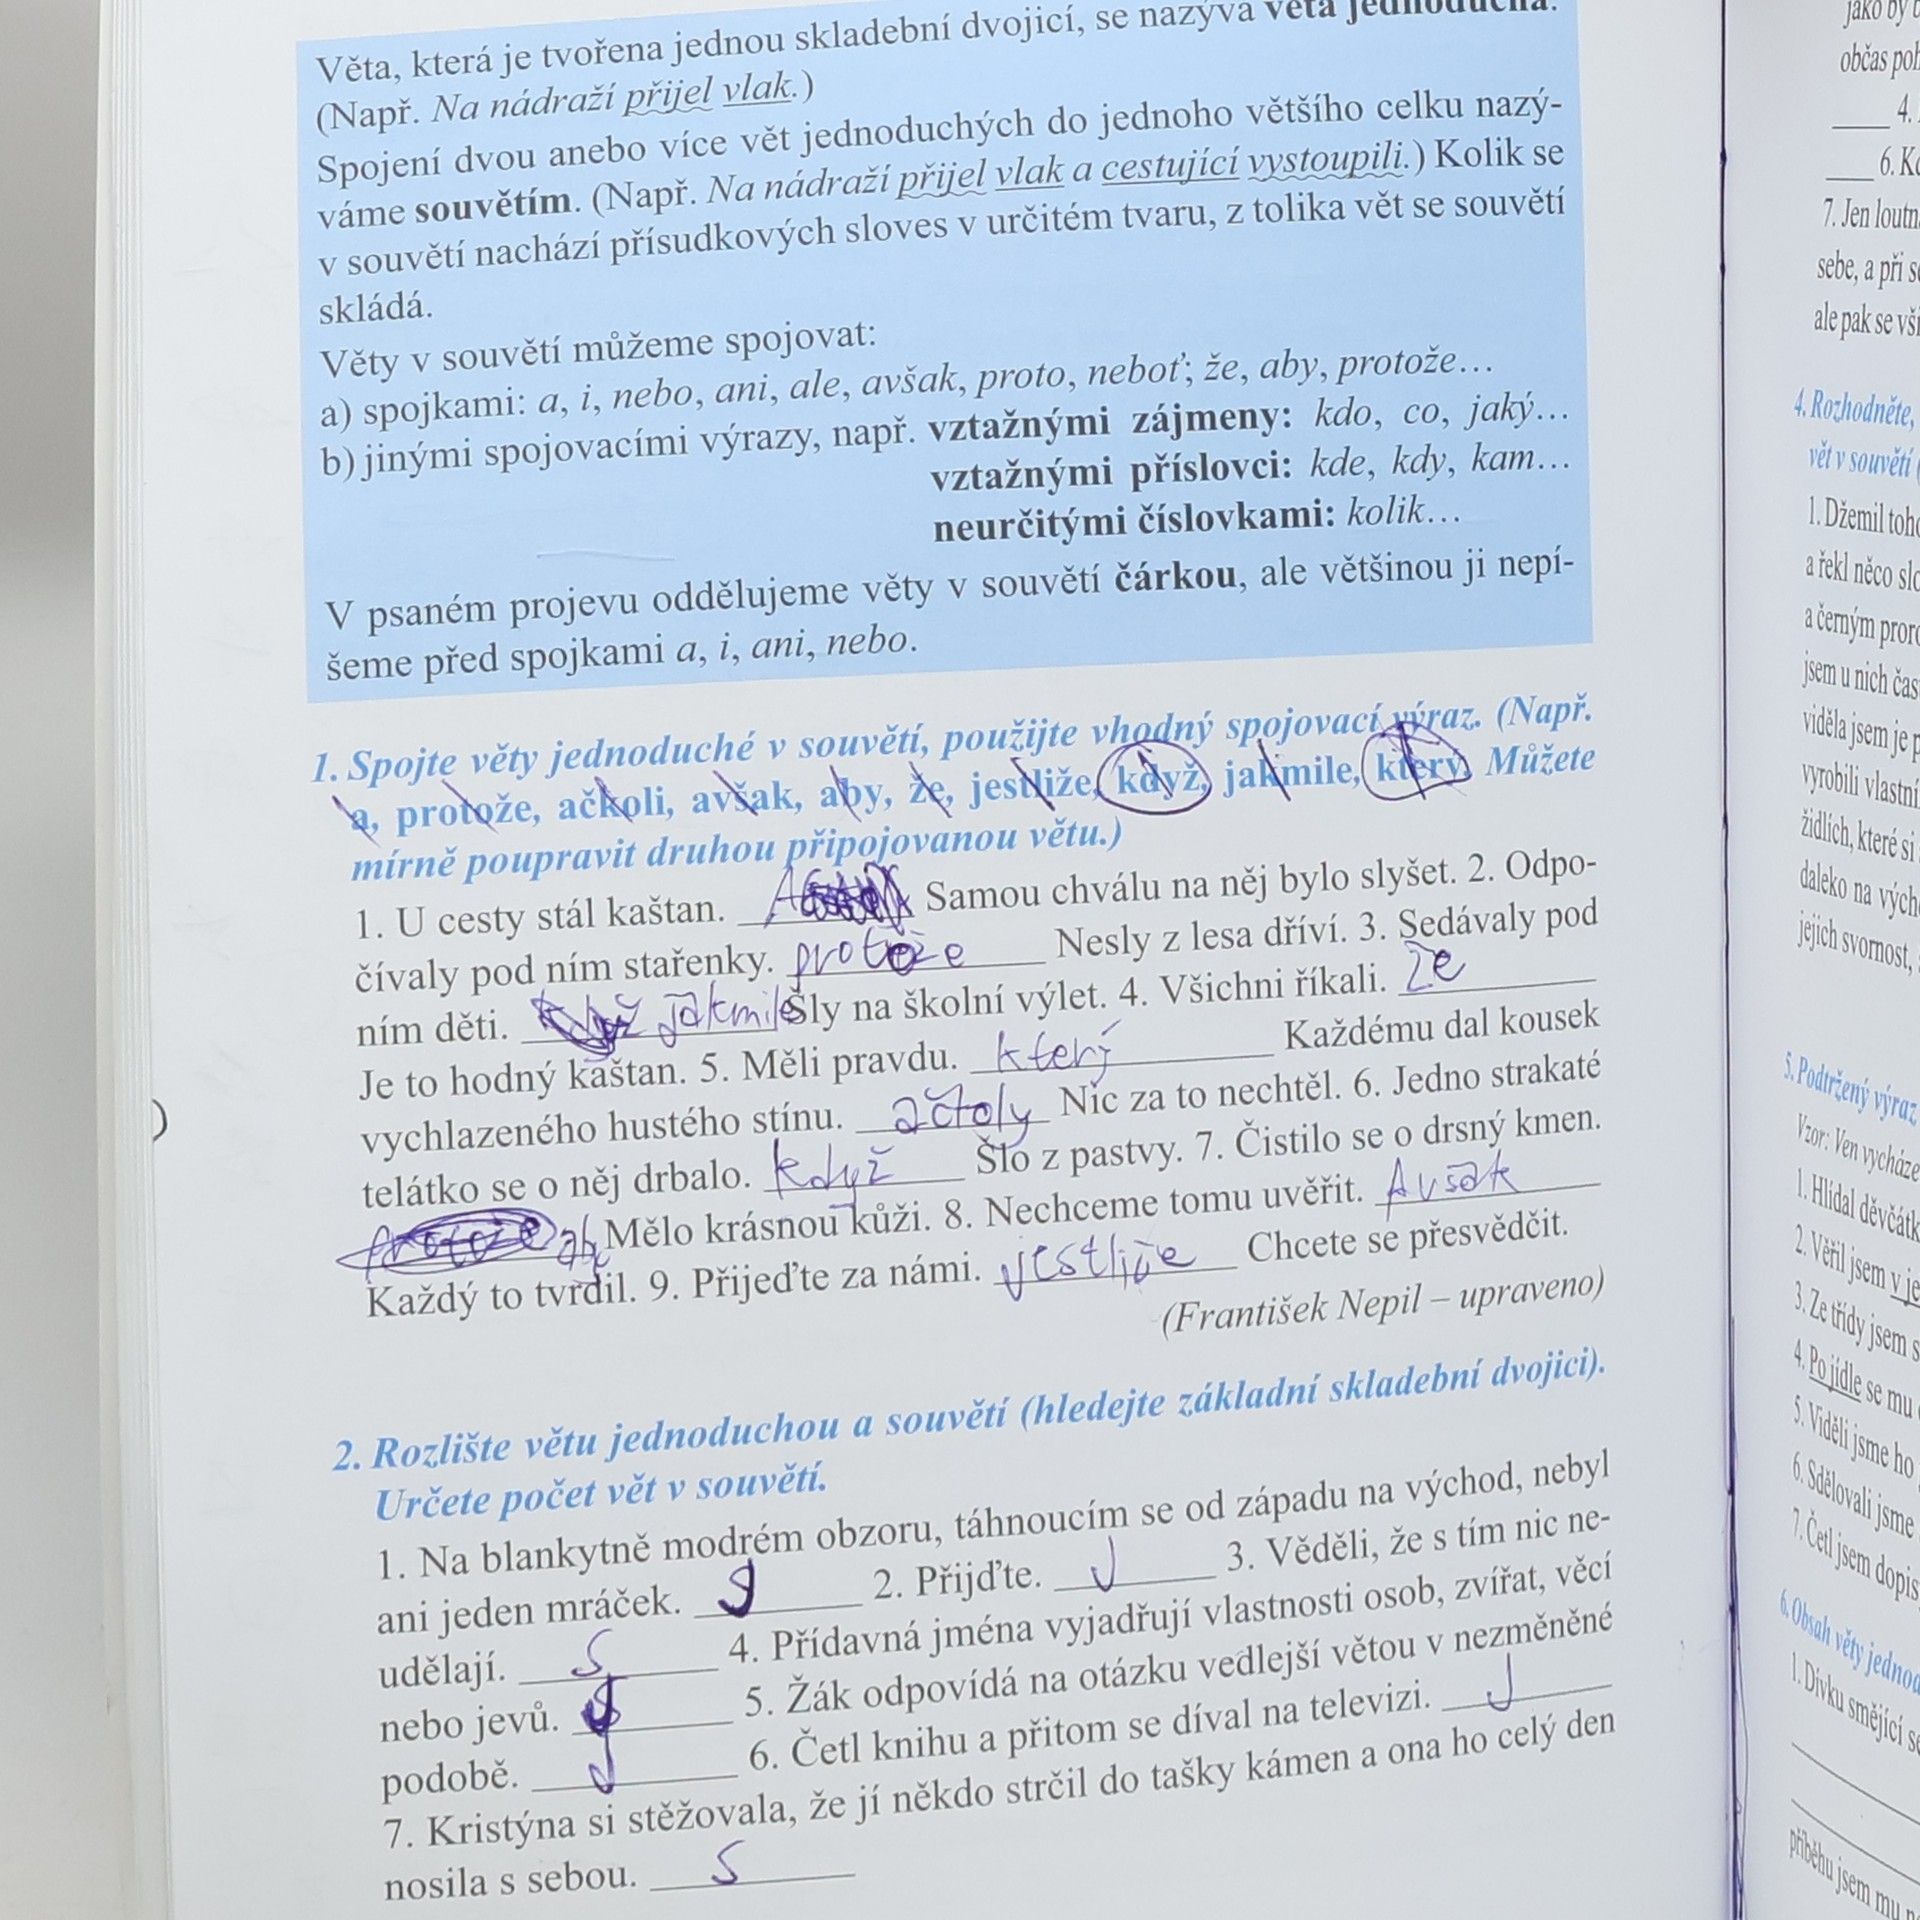 Věta, která je tvořena jednou skladební dvojicí, se nazývá věta jednoduchá.
(Např. Na nádraží přijel vlak.)
Spojení dvou anebo více vět jednoduchých do jednoho většího celku nazý-
váme souvětím. (Např. Na nádraží přijel vlak a cestující vystoupili.) Kolik se
v souvětí nachází přísudkových sloves v určitém tvaru, z tolika vět se souvětí
skládá.
Věty v souvětí můžeme spojovat:
a) spojkami: a, i, nebo, ani, ale, avšak, proto, neboť; že, aby, protože…
b) jinými spojovacími výrazy, např. vztažnými zájmeny: kdo, co, jaký…
vztažnými příslovci: kde, kdy, kam…
neurčitými číslovkami: kolik…
V psaném projevu oddělujeme věty v souvětí čárkou, ale většinou ji nepí-
šeme před spojkami a, i, ani, nebo.
1. Spojte věty jednoduché v souvětí, použijte vhodný spojovací výraz. (Např.
a, protože, ačkoli, avšak, aby, že, jestliže, když, jakmile, který. Můžete
mírně poupravit druhou připojovanou větu.)
1. U cesty stál kaštan. Samou chválu na něj bylo slyšet. 2. Odpo-
čívaly pod ním stařenky. protože Nesly z lesa dříví. 3. Sedávaly pod
ním děti. když jakmile Šly na školní výlet. 4. Všichni říkali. že
Je to hodný kaštan. 5. Měli pravdu. který Každému dal kousek
vychlazeného hustého stínu. ačtoly Nic za to nechtěl. 6. Jedno strakaté
telátko se o něj drbalo. když Šlo z pastvy. 7. Čistilo se o drsný kmen.
protože aby Mělo krásnou kůži. 8. Nechceme tomu uvěřit. Avšak
Každý to tvrdil. 9. Přijeďte za námi. jestliže Chcete se přesvědčit.
(František Nepil – upraveno)
2. Rozlište větu jednoduchou a souvětí (hledejte základní skladební dvojici).
Určete počet vět v souvětí.
1. Na blankytně modrém obzoru, táhnoucím se od západu na východ, nebyl
ani jeden mráček. J 2. Přijďte. J 3. Věděli, že s tím nic ne-
udělají. S 4. Přídavná jména vyjadřují vlastnosti osob, zvířat, věcí
nebo jevů. J 5. Žák odpovídá na otázku vedlejší větou v nezměněné
podobě. J 6. Četl knihu a přitom se díval na televizi. J
7. Kristýna si stěžovala, že jí někdo strčil do tašky kámen a ona ho celý den
nosila s sebou. S
jako by
občas
4.
6.
7. Jen
sebe, a při
ale pak se
4. Rozhodněte,
vět v souvětí
1. Džemil
a řekl něco
a černým
jsem u nich
viděla jsem je
vyrobili vlastní
židlích, které si
daleko na
jejich svornost,
5. Podtržený výraz
Vzor: Ven
1. Hlídal děvčátk
2. Věřil jsem v
3. Ze třídy jsem
4. Po jídle se mu
5. Viděli jsme ho
6. Sdělovali jsme
7. Četl jsem dopis
6. Obsah věty
1. Dívku smějící
příběhu jsem mu